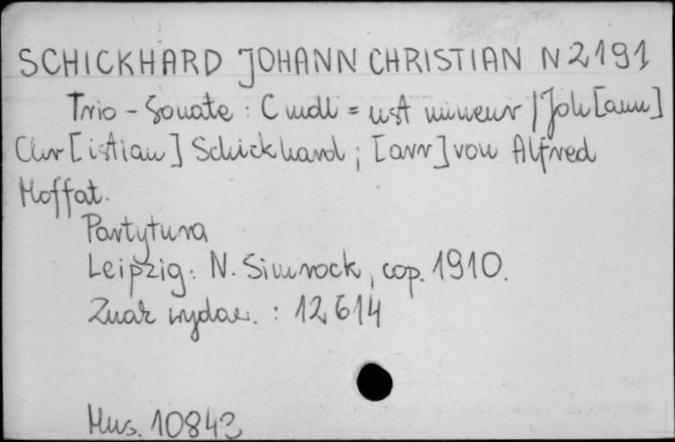 SCHICKHARD JOHANN CHRISTIAN N 2191
Trio - Sonate : C moll = ust mineur / Joh[ann]
Chr[istian] Schickhard ; [arr] von Alfred
Moffat.
Partytura
Leipzig : N. Simrock, cop. 1910.
Znak wydaw. : 12614
Mus. 10843